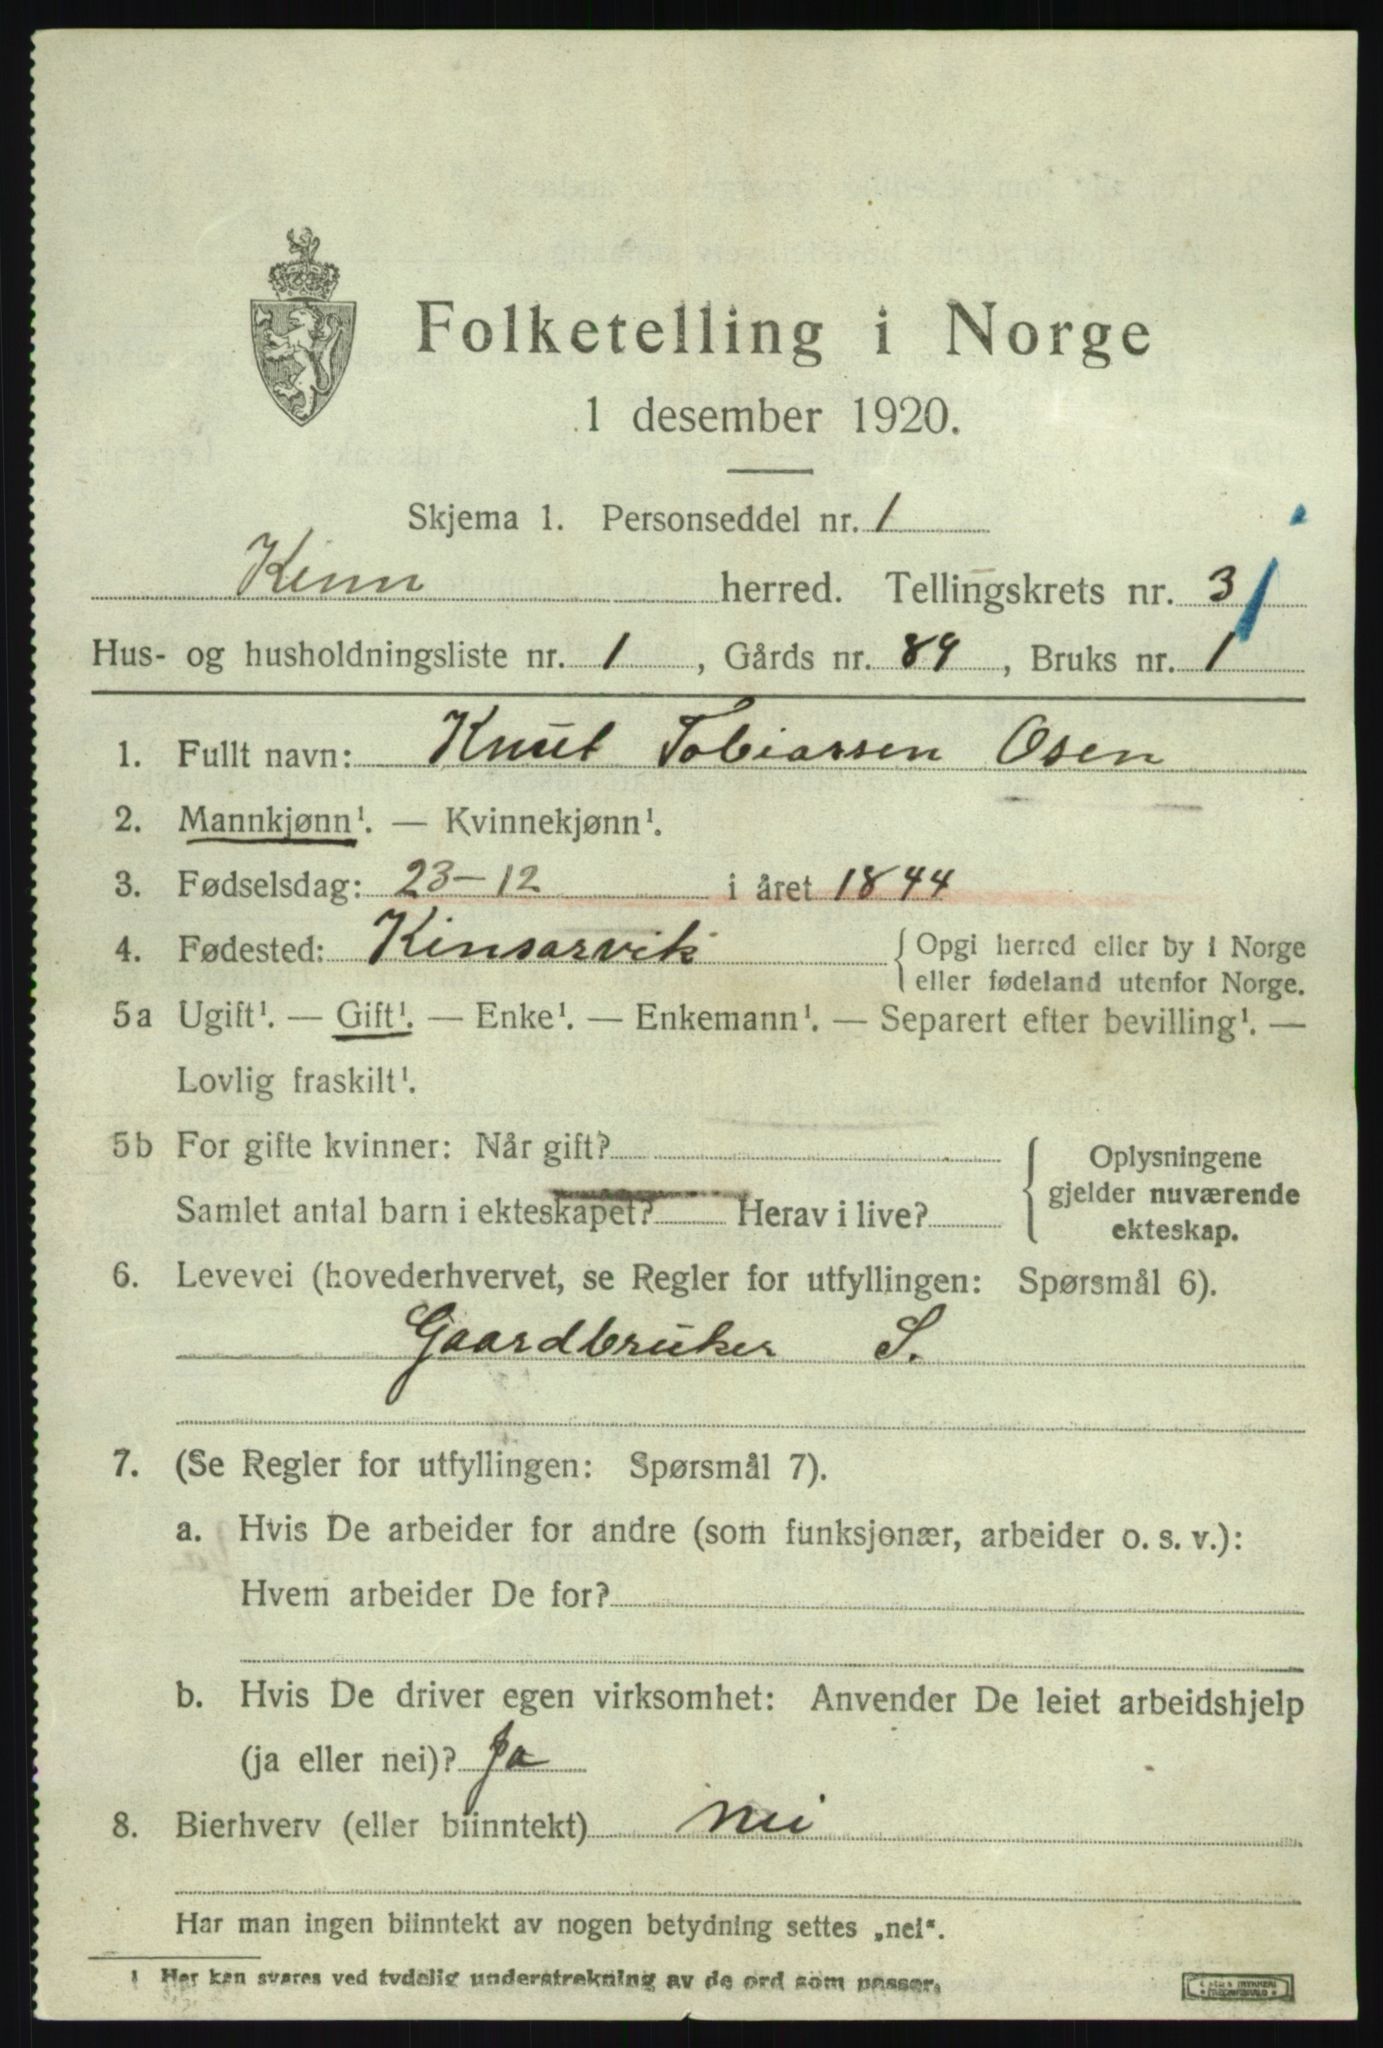 Folketelling i Norge
1 desember 1920.
Skjema 1. Personseddel nr. 1
Kinn herred. Tellingskrets nr. 3
Hus- og husholdningsliste nr. 1, Gårds nr. 89, Bruks nr. 1
1. Fullt navn: Knut Tobiassen Osen
2. Mannkjønn¹. — Kvinnekjønn¹.
3. Fødselsdag: 23-12 i året 1844
4. Fødested: Kinsarvik { Opgi herred eller by i Norge
eller fødeland utenfor Norge.
5a Ugift¹. — Gift¹. — Enke¹. — Enkemann¹. — Separert efter bevilling¹. —
Lovlig fraskilt¹.
5b For gifte kvinner: Når gift?
Samlet antal barn i ekteskapet? Herav i live?
Oplysningene
gjelder nuværende
ekteskap.
6. Levevei (hovederhvervet, se Regler for utfyllingen: Spørsmål 6).
Gaardbruker S.
7. (Se Regler for utfyllingen: Spørsmål 7).
a. Hvis De arbeider for andre (som funksjonær, arbeider o. s. v.):
Hvem arbeider De for?
b. Hvis De driver egen virksomhet: Anvender De leiet arbeidshjelp
(ja eller nei)? Ja
8. Bierhverv (eller biinntekt) nei
Har man ingen biinntekt av nogen betydning settes „nei“.
1 Her kan svares ved tydelig understrekning av de ord som passer.